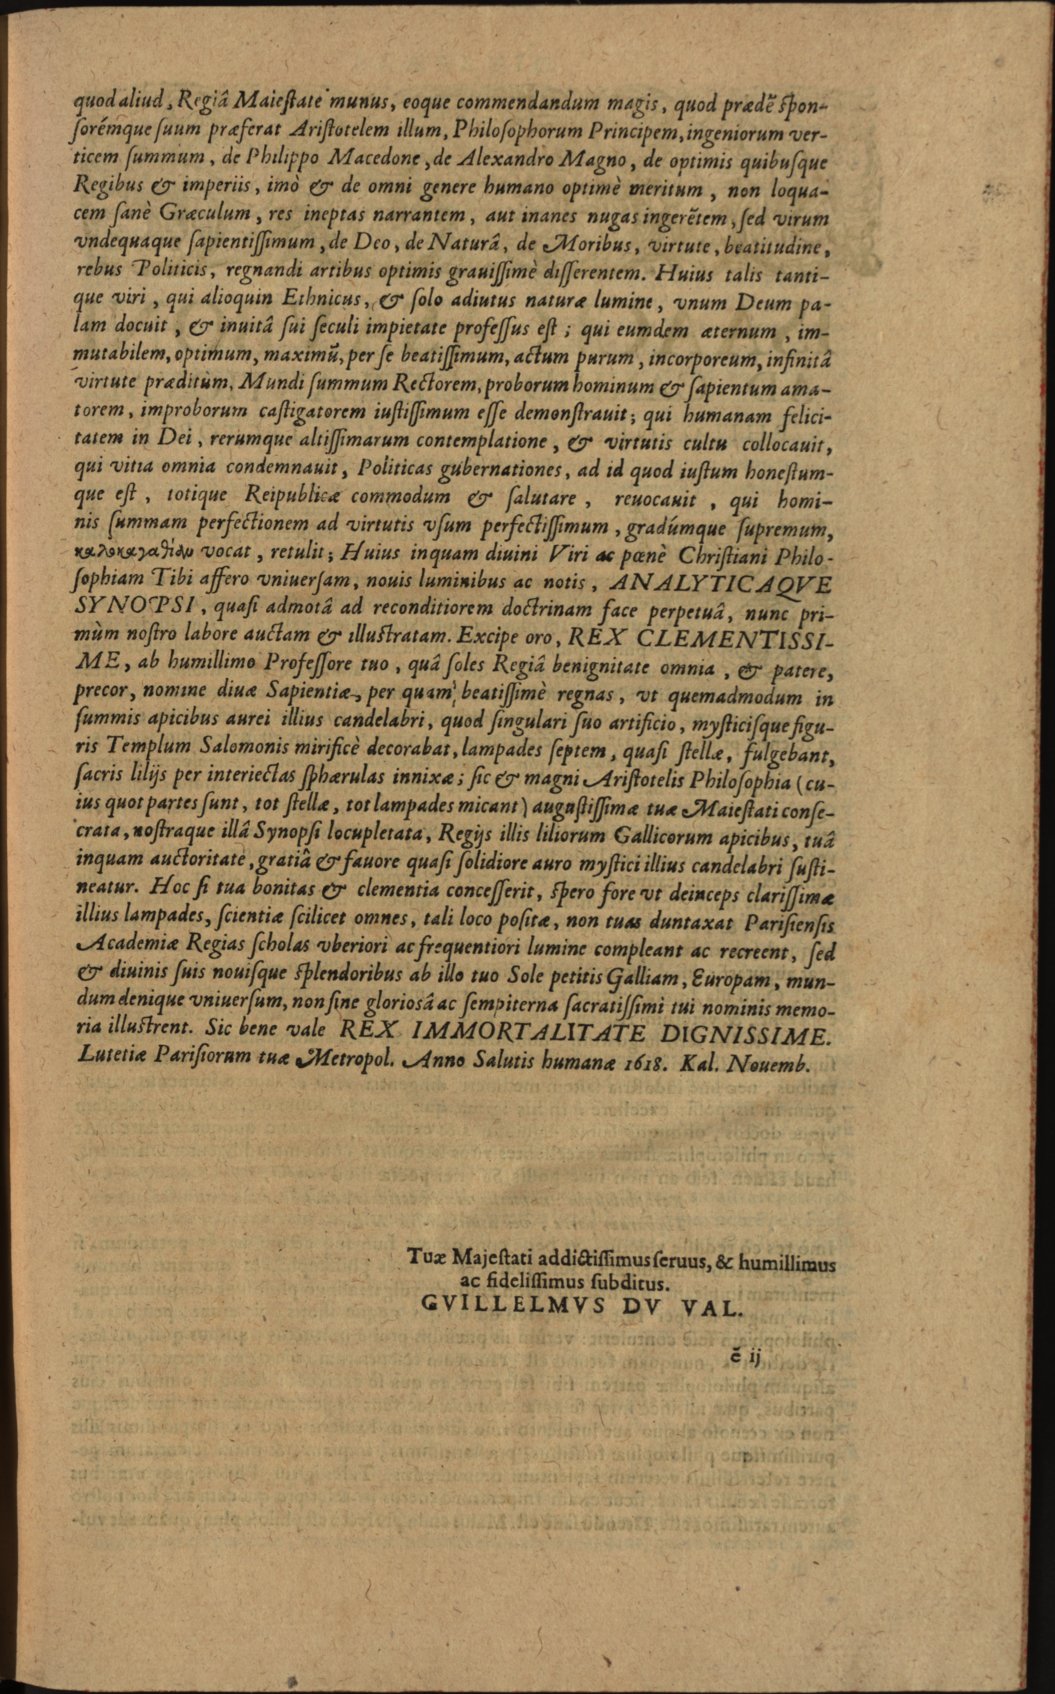 quod aliud, Regiâ Maieſtate munus, eoque commendandum magis, quod prædẽ ſpon-
ſorémque ſuum præferat Ariſtotelem illum, Philoſophorum Principem, ingeniorum ver-
ticem ſummum, de Philippo Macedone, de Alexandro Magno, de optimis quibuſque
Regibus & imperiis, imò & de omni genere humano optimè meritum, non loqua-
cem ſanè Græculum, res ineptas narrantem, aut inanes nugas ingerẽtem, ſed virum
vndequaque ſapientiſſimum, de Deo, de Naturâ, de Moribus, virtute, beatitudine,
rebus Politicis, regnandi artibus optimis grauiſſimè diſſerentem. Huius talis tanti-
que viri, qui alioquin Ethnicus, & ſolo adiutus naturæ lumine, vnum Deum pa-
lam docuit, & inuitâ ſui ſeculi impietate profeſſus eſt; qui eumdem æternum, im-
mutabilem, optimum, maximũ, per ſe beatiſſimum, actum purum, incorporeum, infinitâ
virtute præditum, Mundi ſummum Rectorem, proborum hominum & ſapientum ama-
torem, improborum caſtigatorem iuſtiſſimum eſſe demonſtrauit; qui humanam felici-
tatem in Dei, rerumque altiſſimarum contemplatione, & virtutis cultu collocauit,
qui vitia omnia condemnauit, Politicas gubernationes, ad id quod iuſtum honeſtum-
que eſt, totique Reipublicæ commodum & ſalutare, reuocauit, qui homi-
nis ſummam perfectionem ad virtutis vſum perfectiſſimum, gradúmque ſupremum,
καλοκαγαθίαν vocat, retulit; Huius inquam diuini Viri ac pœnè Chriſtiani Philo-
ſophiam Tibi affero vniuerſam, nouis luminibus ac notis, ANALYTICAQVE
SYNOPSI, quaſi admotâ ad reconditiorem doctrinam face perpetuâ, nunc pri-
mùm noſtro labore auctam & illuſtratam. Excipe oro, REX CLEMENTISSI-
ME, ab humillimo Profeſſore tuo, quâ ſoles Regiâ benignitate omnia, & patere,
precor, nomine diuæ Sapientiæ, per quam beatiſſimè regnas, vt quemadmodum in
ſummis apicibus aurei illius candelabri, quod ſingulari ſuo artificio, myſticiſque figu-
ris Templum Salomonis mirificè decorabat, lampades ſeptem, quaſi ſtellæ, fulgebant,
ſacris lilijs per interiectas ſphærulas innixæ; ſic & magni Ariſtotelis Philoſophia (cu-
ius quot partes ſunt, tot ſtellæ, tot lampades micant) auguſtiſſimæ tuæ Maieſtati conſe-
crata, noſtraque illâ Synopſi locupletata, Regijs illis liliorum Gallicorum apicibus, tuâ
inquam auctoritate, gratiâ & fauore quaſi ſolidiore auro myſtici illius candelabri ſuſti-
neatur. Hoc ſi tua bonitas & clementia conceſſerit, ſpero fore vt deinceps clariſſimæ
illius lampades, ſcientiæ ſcilicet omnes, tali loco poſitæ, non tuas duntaxat Pariſienſis
Academiæ Regias ſcholas vberiori ac frequentiori lumine compleant ac recreent, ſed
& diuinis ſuis nouiſque ſplendoribus ab illo tuo Sole petitis Galliam, Europam, mun-
dum denique vniuerſum, non ſine glorioſâ ac ſempiterna ſacratiſſimi tui nominis memo-
ria illuſtrent. Sic bene vale REX IMMORTALITATE DIGNISSIME.
Lutetiæ Pariſiorum tuæ Metropol. Anno Salutis humanæ 1618. Kal. Nouemb.
Tuæ Majeſtati addictiſſimus ſeruus, & humillimus
ac fideliſſimus ſubditus.
GVILLELMVS DV VAL.
ẽ ij